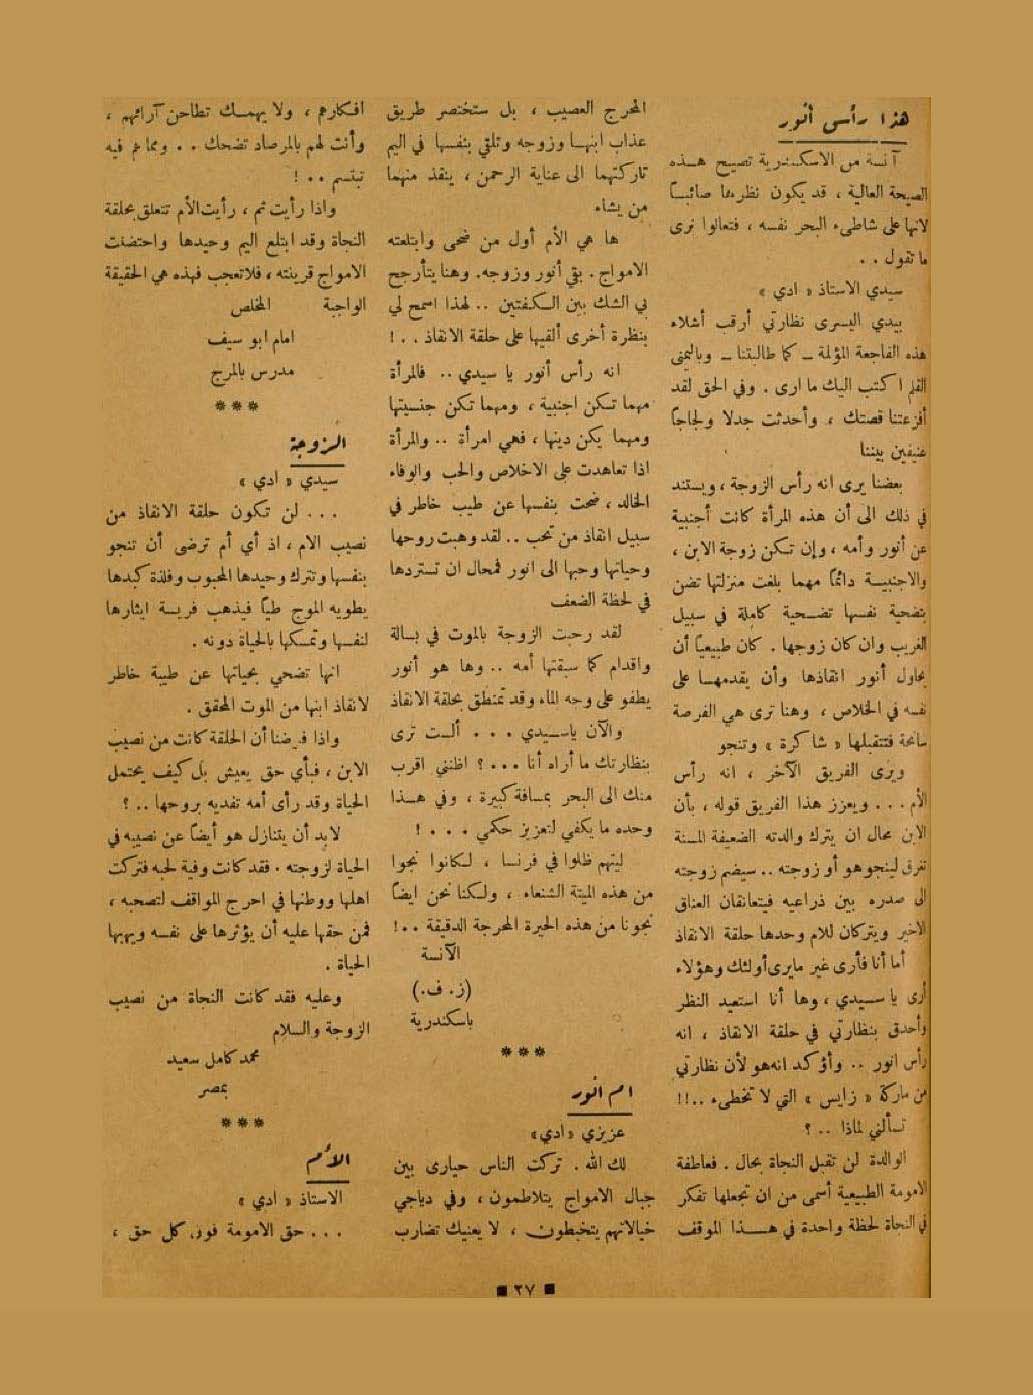 هذا رأس أنور
آنسة من الاسكندرية تصيح هـذه
الصيحة العالية ، قد يكون نظرها صائبـاً
لانها على شاطىء البحر نفسه ، فتعالوا نرى
ما تقول . .
سيدي الاستاذ « ادي »
بيدي اليسرى نظارتي أرقب أشلاء
هذه الفاجعة المؤلمة ــ كما طالبتنا ــ وباليمنى
القلم اكتب اليك ما ارى . وفي الحق لقد
أفزعتنا قصتك ، وأحدثت جدلا ولجاجاً
عنيفين بيننا
بعضنا يرى انه رأس الزوجة ، ويستند
في ذلك الى أن هذه المرأة كانت أجنبية
عن أنور وأمه ، وإن تـكن زوجة الابن ،
والاجنبيـة دائماً مهما بلغت منزلتها تضن
بتضحية نفسها تضحية كاملة في سبيل
الغريب وان كان زوجها . كان طبيعياً أن
يحاول أنور انقاذها وأن يقدمهـا على
نفسه في الخلاص ، وهنا ترى هي الفرصة
سانحة فتتقبلها « شاكرة » وتنجو
ويرى الفريق الآخر ، انه رأس
الأم . . . ويعزز هذا الفريق قوله ، بأن
الابن محال ان يترك والدته الضعيفة المسنة
تغرق لينجو هو أو زوجته .. سيضم زوجته
الى صدره بين ذراعيه فيتعانقان العناق
الاخير ويتركان للام وحدها حلقة الانقاذ
أما أنا فأرى غير ما يرى أولئك وهؤلاء
أرى يا سـيدي ، وها أنا استعيد النظر
وأحدق بنظارتي في حلقة الانقاذ ، انه
رأس انور .. وأؤكد انه هو لأن نظارتي
من ماركة « زايس » التي لا تخطىء ..!!
تسألني لماذا .. ؟
الوالدة لن تقبل النجاة بحال . فعاطفة
الامومة الطبيعية أسمى من ان تجعلها تفكر
في النجاة لحظة واحدة في هـذا الموقف
المحرج العصيب ، بل ستختصر طريق
عذاب ابنهـا وزوجه وتلقي بنفسها في اليم
تاركتهما الى عناية الرحمن ، ينقذ منهما
من يشاء
ها هي الأم أول من ضحى وابتلعته
الامواج . بقي أنور وزوجه. وهنا يتأرجح
بي الشك بين الكفتين .. لهذا اسمح لي
بنظرة أخرى ألقيها على حلقة الانقاذ . . !
انه رأس أنور يا سيدي .. فالمرأة
مهما تـكن اجنبية ، ومهما تكن جنسيتها
ومهما يكن دينها ، فهي امرأة .. والمرأة
اذا تعاهدت على الاخلاص والحب والوفاء
الخالد ، ضحت بنفسها عن طيب خاطر في
سبيل انقاذ من تحب .. لقد وهبت روحها
وحياتها وحبها الى انور فمحال ان تستردها
في لحظة الضعف
لقد رحبت الزوجة بالموت في بسالة
واقدام كما سبقتها أمه .. وها هو أنور
يطفو على وجه الماء وقد تمنطق بحلقة الانقاذ
والآن ياسيدي . . . ألست ترى
بنظارتك ما أراه أنا . . . ؟ اظنني اقرب
منك الى البحر بمسافة كبيرة ، وفي هـذا
وحده ما يكفي لتعزيز حكمي . . . !
ليتهم ظلوا في فرنسا ، لكانوا نجوا
من هذه الميتة الشنعاء ، ولكنا نحن ايضاً
نجونا من هذه الحيرة المحرجة الدقيقة ..!
الآنسة
(ز. ف.)
باسكندرية
***
ام انور
عزيزي «ادي»
لك الله . تركت الناس حيارى بين
جبال الامواج يتلاطمون ، وفي دياجي
خيالاتهم يتخبطون ، لا يعنيك تضارب
افـكارهم ، ولا يهمـك تطاحن آرائهم ،
وأنت لهم بالمرصاد تضحك . . ومما هم فيه
تبتسم .. !
واذا رأيت ثم ، رأيت الأم تتعلق بحلقة
النجاة وقد ابتلع اليم وحيدها واحتضنت
الامواج قرينته ، فلاتعجب فهذه هي الحقيقة
الواجبة المخلص
امام ابو سيف
مدرس بالمرج
***
الزوجة
سيدي « ادي »
. . . لن تكون حلقة الانقاذ من
نصيب الام ، اذ أي أم ترضى أن تنجو
بنفسها وتترك وحيدها المحبوب وفلذة كبدها
يطويه الموج طياً فيذهب فريسة ايثارها
لنفسها وتمسكها بالحياة دونه .
انها تضحي بحياتها عن طيبة خاطر
لانقاذ ابنها من الموت المحقق .
واذا فرضنا أن الحلقة كانت من نصيب
الابن ، فبأي حق يعيش بل كيف يحتمل
الحياة وقد رأى أمه تفديه بروحها ..؟
لابد أن يتنازل هو أيضاً عن نصيبه في
الحياة لزوجته . فقد كانت وفية لحبه فتركت
اهلها ووطنها في احرج المواقف لتصحبه ،
فمن حقها عليه أن يؤثرها على نفسه ويهبها
الحياة .
وعليه فقد كانت النجاة من نصيب
الزوجة والسلام
محمد كامل سعيد
بمصر
***
الأم
الاستاذ « ادي »
. . . حق الامومة فوق كل حق ،
■ ٢٧ ■